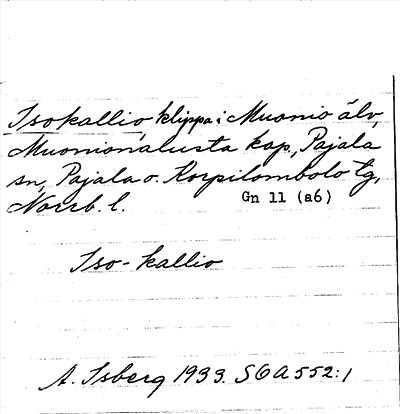 Isokallio, klippa i Muonio älv,
Muonionalusta kap., Pajala
sn, Pajala o. Korpilombolo tg,
Norrb. l.
Gn 11 (a6)
Iso-kallio
A. Isberg 1933. SOA 552:1